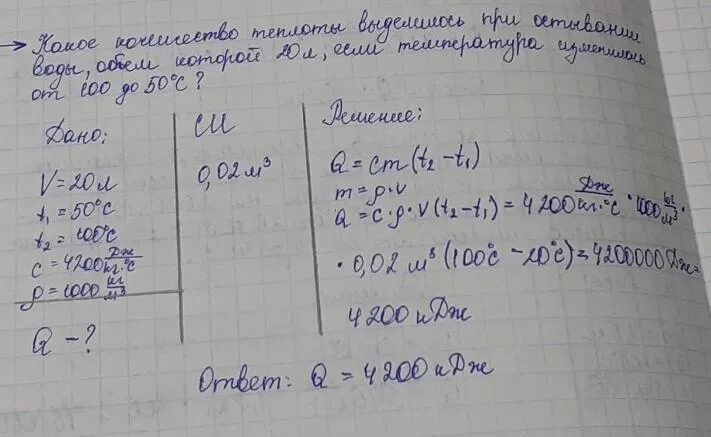 → Какое количество теплоты выделилось при остывании
воды, объем которой 20 л, если температура изменилась
от 100 до 50°С?
Дано:
V = 20 л
t₁ = 50°С
t₂ = 100°С
c = 4200 Дж/кг·°С
ρ = 1000 кг/м³
Q - ?
СИ
0,02 м³
Решение:
Q = cm(t₂ - t₁)
m = ρ·V
Q = c·ρ·V(t₂ - t₁) = 4200 Дж/кг·°С · 1000 кг/м³ ·
· 0,02 м³ (100°С - 20°С) = 4200000 Дж =
4200 кДж
Ответ: Q = 4200 кДж